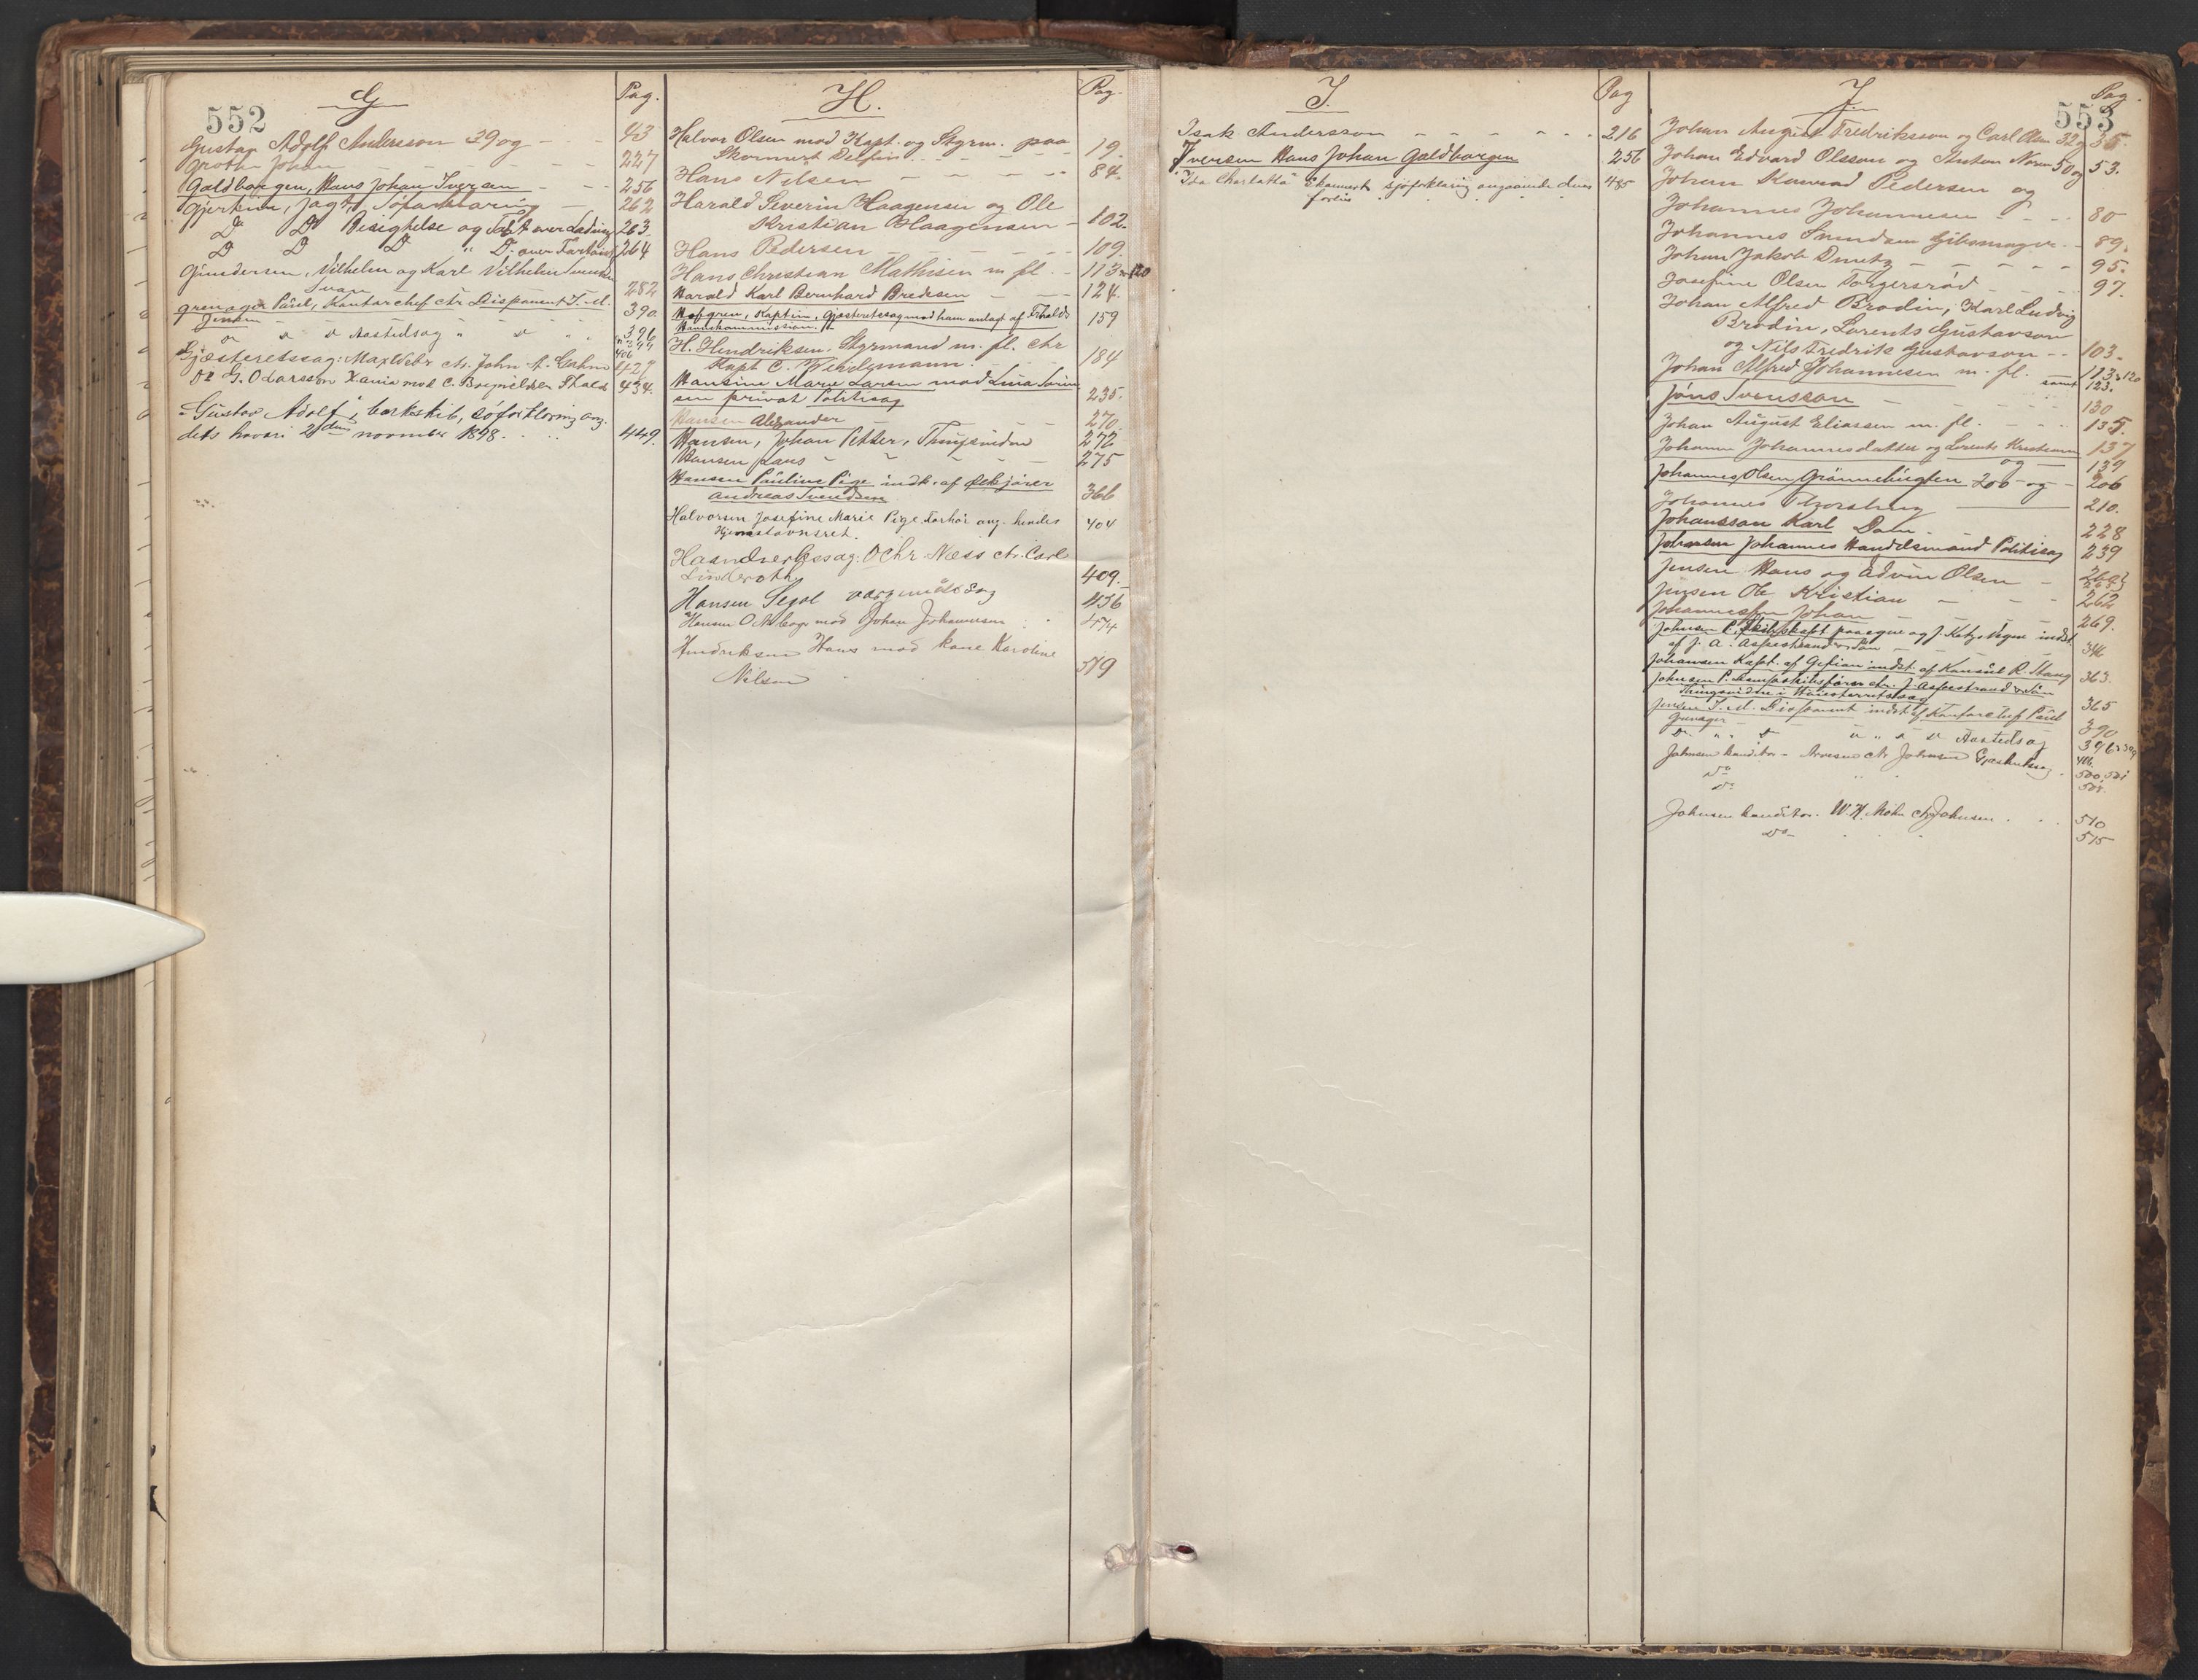 552
G
Pag.
Gustav Adolf Andersson 39 og - - - 43
Groth Johan - - - 227
Galdbargen, Hans Johan Iversen - - - 256
Gjertine, Jagt, Søforklaring - 262
Do Do Besigtelse og Taxt over Ladning 263
D D D " D. over Fartøiet 264
Gundersen, Vilhelm og Karl Vilhelm Svendsen
Svan - 282
Grenager Paul, Kontorchef ctr Disponent J. M. 390
Jensen
" " " Aastedsag " " " " 396
406
Gjæsteretssag: Max Weber ctr. John A. Grahm 427
Do G. Olarsson Xania mod C. Thalds 434.
"Gustav Adolf", barkskib, søforklaring ang.
dets havari 2den november 1898. . . . 449.
H.
Pag.
Halvor Olsen mod Kapt. og Styrm. paa
Skonnert Delfin . . - - - 19.
Hans Nilsen - - - - - 84.
Harald Severin Haagensen og Ole
Kristian Haagensen - 102.
Hans Pedersen - - - - 109.
Hans Christian Mathisen m fl. - - 113 120
Harald Karl Bernhard Bredesen - - - 124.
Hofgren, Kaptin, Gjæsteretssag mod ham anlagt af Fr.halds 159
Havnekommission.
H. Hendriksen, Styrmand m. fl. ctr
Kapt C. 184
Hansine Marie Larsen mod Lina Soren
sen privat Politisag 235.
Hansen Alexander - - - 270.
Hansen, Johan Petter, Thingsvidne 272
Hansen Lars - - - - - 275
Hansen Pauline Pige indk. af
Andreas Svendsen 366
Halvorsen Josefine Marie Pige. Forhør ang. hendes 404
Hjemstavnsret.
Haandverkssag: O Chr. Næss ctr. Carl
Linderoth, 409.
Hansen Segol 436
Hansen O mod Johan Johannesen . . 474
Hendriksen Hans mod kone Karoline
Nilsen . . . 519
I.
Pag
Isak Andersson - - - - - - . 216
Iversen Hans Johan Galdbargen 256
"Ida Charlotta" Skonnert sjøforklaring angaaende dens 485
forlis . . . . .
J.
Pag.
553
Johan August Fredriksson og Carl Olsen 32 og 35.
Johan Edvard Olsson og Anton Noren 50 og 53.
Johan Konrad Pedersen og
Johannes Johannesen - - - 80
Johannes Gibsmager. - 89.
Johan Jakob - - - - - 95.
Josefine Olsen Torgersrød - - - 97.
Johan Alfred Brodin, Karl Ludvig
Brodin, Lorents Gustavson
og Nils Fredrik Gustavson - - 103.
Johan Alfred Johannesen m. fl. samt 113 120
123.
Jöns Svensson - - - - - 130
Johan August Eliassen m. fl. - - - 135.
Johanne Johannesdatter og Lorents Kristiansen 137
og - 139
Johannes Olsen Grönnebugten 200 - og - 206
Johannes Thorsberg 210.
Johansson Karl Dom 228
Johansen Johannes Handelsmand Politisag 239
Jensen Hans og Edvin Olsen -
Jensen Ole Kristian - - - 262
Johannessen Johan - - - 269.
Johnsen C. Skibskapt. paa egne og J. Katz's Vegne indst.
af J. A. Aspestrand & Søn - - - 346
Johansen Kapt. af Gefion indst. af Konsul R. Stang 363.
Johnsen P. Dampskibsfører ctr. J. Aspestrand & Søn
Thingsvidne i Høiesteretssag 365
Jensen J. M. Disponent indst. af Kontorchef Paul
Grenager - - - 390
Do " " " " " " Aastedsag 396 & 399
406.
Johnsen konditor - Arvesen ctr Johnsen Gjæsteretssag . 500, 501
Do " . .
Do
Johnsen konditor. W. H. Mohn ctr Johnsen . . . 510
Do - . . . 515